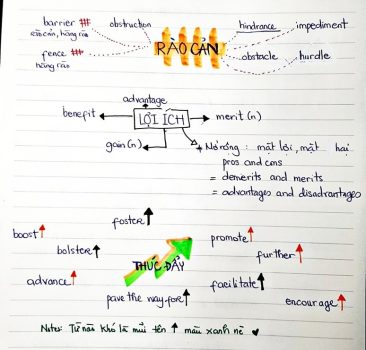 barrier obstruction hindrance impediment
rào cản, hàng rào
fence RÀO CẢN obstacle hurdle
hàng rào
advantage
benefit LỢI ÍCH merit (n)
gain (n) Mở rộng: mặt lợi, mặt hại
pros and cons
= demerits and merits
= advantages and disadvantages
foster
boost promote
bolster further
THÚC ĐẨY
advance facilitate
pave the way fore encourage
Notes: Từ nào khó là mũi tên màu xanh nè